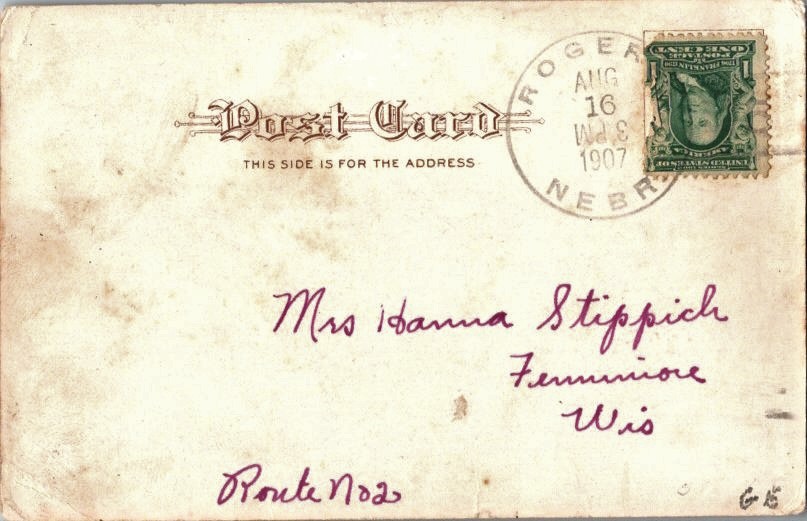 Post Card
THIS SIDE IS FOR THE ADDRESS
ROGER
AUG
16
3 PM
1907
NEBR
ONE CENT
POSTAGE
1 1
UNITED STATES OF
AMERICA
Mrs Hanna Stippich
Fennimore
Wis
Route No 2